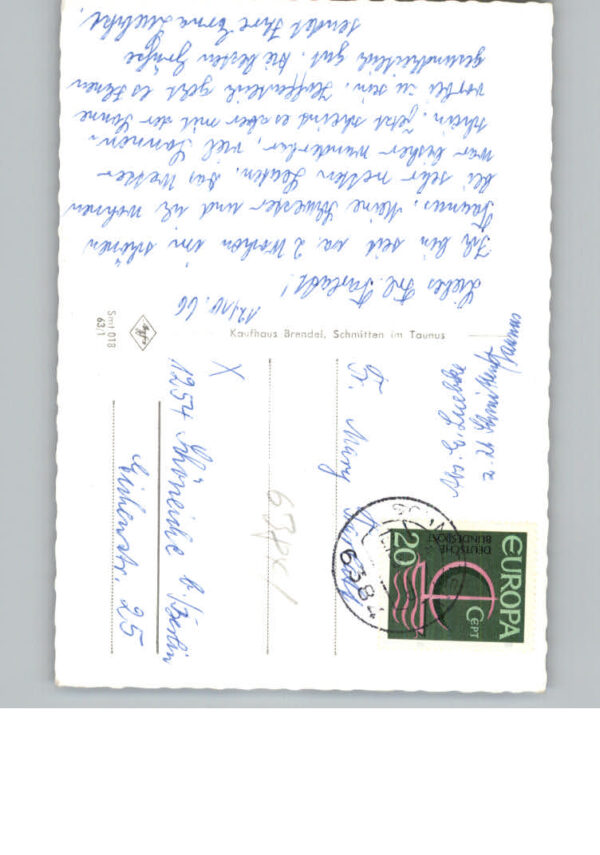 12/10. 66
Liebes Frl. 
Ich bin seit ca. 2 Wochen im schönen
Taunus. Meine Schwester und ich wohnen
bei sehr netten Leuten. Das Wetter
war bisher wunderbar, viel Sonnen-
schein. Jetzt scheint es aber mit der Sonne
vorbei zu sein. Hoffentlich geht es Ihnen
gesundheitlich gut. Die besten Grüße
sendet Ihre Erna
Kaufhaus Brendel, Schmitten im Taunus
Agfa
Smt 018
63/1
Abs. E. Luebke
z. Zt. Schmitten
Taunus
EUROPA
CEPT
DEUTSCHE
BUNDESPOST
20
6384
X
1254 Schöneiche b/Berlin
25